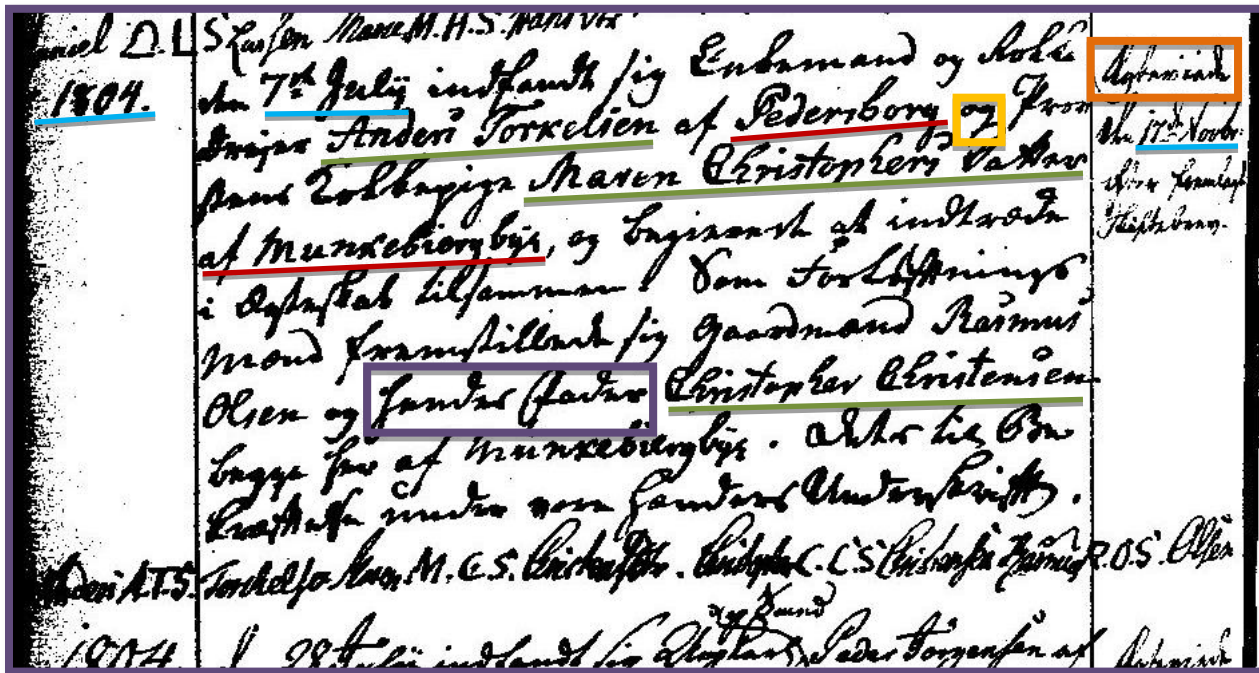 Daniel D.L.S. Larsen Maren M.H.S. Hansdor
1804.
den 7de Julÿ indfandt sig Enkemand og Rokke
drejer Anders Torkelsen af Pedersborg og Prov
stens Kokkepige Maren Christophers Datter
af Munkebiergbÿe, og begierede at indtræde
i Ægteskab tilsammen. Som Forlovnings
mænd fremstillede sig Gaardmænd Rasmus
Olsen og hendes Fader Christopher Christensen
begge her af Munkebiergbÿe. Dets til Be
kræftelse under vore Hænders Underskrift.
Anders A.T.S. Torkelsen Maren M.C.S. Christophdtr. Christopher C.C.S. Christensen Rasmus R.O.S. Olsen
Ægteviede
den 17de Novbr.
efter fremlagt
Skiftebrev.
og Smed
1804. d. 28 Julÿ indfandt sig Ungkarl Peder Jørgensen af
Ægteviede